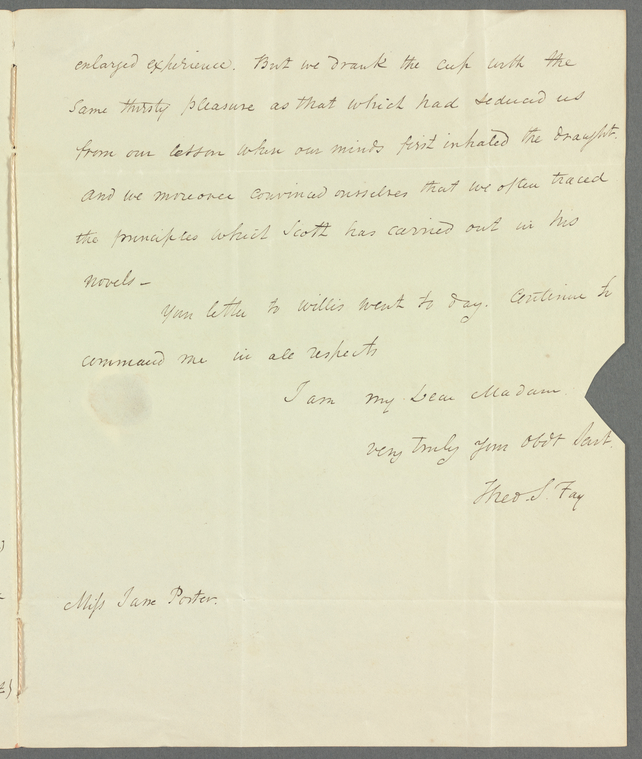 enlarged experience. But we drank the cup with the
same thirsty pleasure as that which had seduced us
from our lesson when our minds first inhaled the draught.
And we moreover convinced ourselves that we often traced
the principles which Scott has carried out in his
novels –
Your letter to Willis went to day. Continue to
command me in all respects
I am my Dear Madam
very truly your obdt Servt.
Theo. S. Fay
Miss Jane Porter.